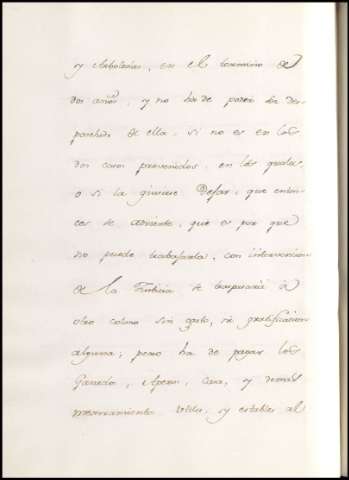 y Arboledas, en el termino de
dos años, y no ha de poder ser des-
parchido de ella, si no es en los
dos casos prevenidos, en los quales,
o si la quisiere Dejar, que enton-
ces se advierte, que es por que
no puede trabajarla, con intervencion
de la Justicia se traspasará á
otro colono sin gasto, ni gratificacion
alguna; pero ha de pagar los
Ganado, Aperos, Casa, y demas
mejoramiento utiles, y estables al